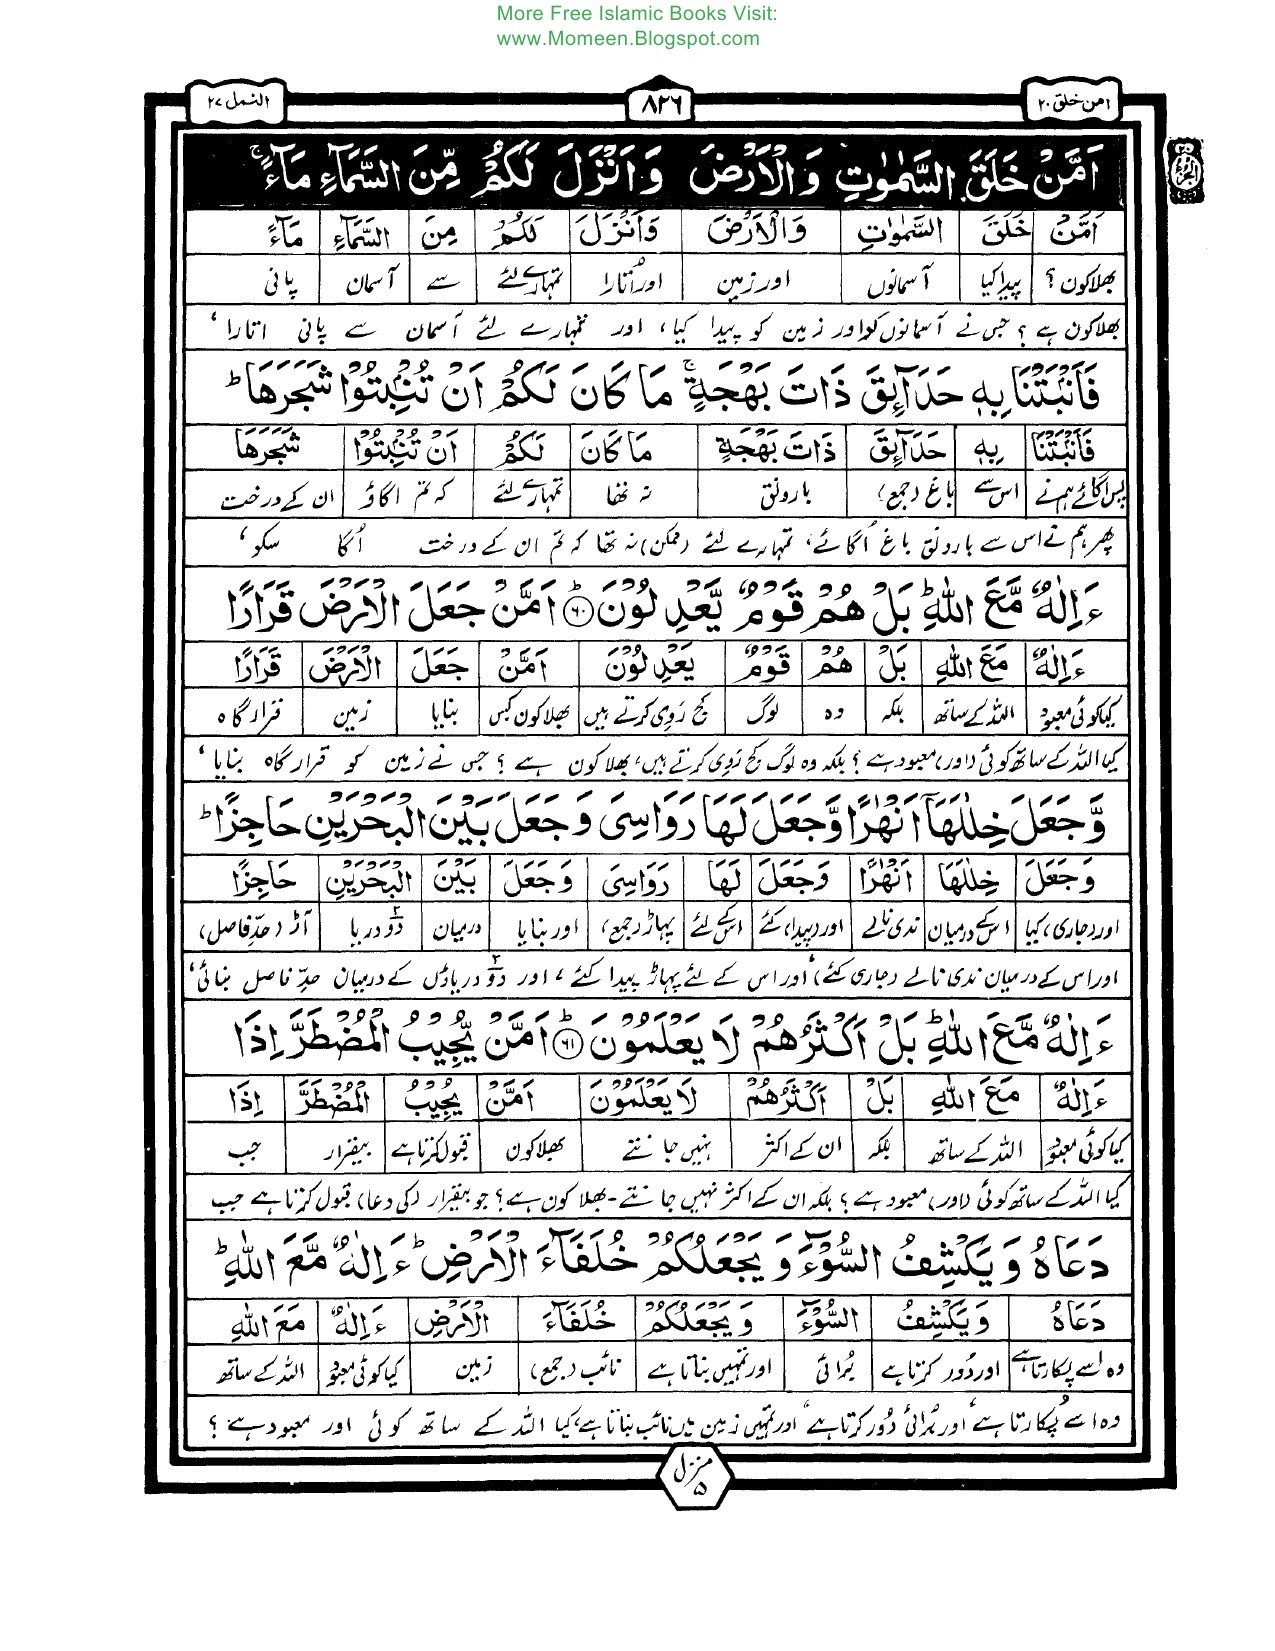 More Free Islamic Books Visit:
www.Momeen.Blogspot.com
امن خلق ۲۰ ۸۲۶ النمل ۲۷
اَمَّنْ خَلَقَ السَّمٰوٰتِ وَالْاَرْضَ وَاَنْزَلَ لَكُمْ مِّنَ السَّمَآءِ مَآءً ۚ
اَمَّنْ خَلَقَ السَّمٰوٰتِ وَالْاَرْضَ وَاَنْزَلَ لَكُمْ مِنَ السَّمَآءِ مَآءً
بھلا کون ؟ پیدا کیا آسمانوں اور زمین اور اُتارا تمہارے لئے سے آسمان پانی
بھلا کون ہے ؟ جس نے آسمانوں کو اور زمین کو پیدا کیا، اور تمہارے لئے آسمان سے پانی اتارا ،
فَاَنْۢبَتْنَا بِهٖ حَدَآئِقَ ذَاتَ بَهْجَةٍ ۚ مَا كَانَ لَكُمْ اَنْ تُنْۢبِتُوْا شَجَرَهَا ؕ
فَاَنْۢبَتْنَا بِهٖ حَدَآئِقَ ذَاتَ بَهْجَةٍ مَا كَانَ لَكُمْ اَنْ تُنْۢبِتُوْا شَجَرَهَا
پس اگائے ہم نے اس سے باغ (جمع) بارونق نہ تھا تمہارے لئے کہ تم اگاؤ ان کے درخت
پھر ہم نے اس سے بارونق باغ اُگائے، تمہارے لئے (ممکن) نہ تھا کہ تم ان کے درخت اُگا سکو ،
ءَاِلٰهٌ مَّعَ اللّٰهِ ؕ بَلْ هُمْ قَوْمٌ يَّعْدِلُوْنَ ؕ ۶۰ اَمَّنْ جَعَلَ الْاَرْضَ قَرَارًا
ءَاِلٰهٌ مَعَ اللّٰهِ بَلْ هُمْ قَوْمٌ يَعْدِلُوْنَ اَمَّنْ جَعَلَ الْاَرْضَ قَرَارًا
کیا کوئی معبود اللہ کے ساتھ بلکہ وہ لوگ کج رَوِی کرتے ہیں بھلا کون کس بنایا زمین قرار گاہ
کیا اللہ کے ساتھ کوئی (اور) معبود ہے ؟ بلکہ وہ لوگ کج رَوِی کرتے ہیں، بھلا کون ہے ؟ جس نے زمین کو قرار گاہ بنایا ،
وَّجَعَلَ خِلٰلَهَآ اَنْهٰرًا وَّجَعَلَ لَهَا رَوَاسِيَ وَجَعَلَ بَيْنَ الْبَحْرَيْنِ حَاجِزًا ؕ
وَجَعَلَ خِلٰلَهَا اَنْهٰرًا وَجَعَلَ لَهَا رَوَاسِيَ وَجَعَلَ بَيْنَ الْبَحْرَيْنِ حَاجِزًا
اور (جاری) کیا اس کے درمیان ندی نالے اور (پیدا) کئے اس کے لئے پہاڑ (جمع) اور بنایا درمیان دو دریا آڑ (حدِّ فاصل)
اور اس کے درمیان ندی نالے (جاری کئے) اور اس کے لئے پہاڑ پیدا کئے ، اور دو دریاؤں کے درمیان حدِّ فاصل بنائی ،
ءَاِلٰهٌ مَّعَ اللّٰهِ ؕ بَلْ اَكْثَرُهُمْ لَا يَعْلَمُوْنَ ؕ ۶۱ اَمَّنْ يُّجِيْبُ الْمُضْطَرَّ اِذَا
ءَاِلٰهٌ مَعَ اللّٰهِ بَلْ اَكْثَرُهُمْ لَا يَعْلَمُوْنَ اَمَّنْ يُجِيْبُ الْمُضْطَرَّ اِذَا
کیا کوئی معبود اللہ کے ساتھ بلکہ ان کے اکثر نہیں جانتے بھلا کون قبول کرتا ہے بیقرار جب
کیا اللہ کے ساتھ کوئی (اور) معبود ہے ؟ بلکہ ان کے اکثر نہیں جانتے۔ بھلا کون ہے ؟ جو بیقرار (کی دعا) قبول کرتا ہے جب
دَعَاهُ وَيَكْشِفُ السُّوْٓءَ وَيَجْعَلُكُمْ خُلَفَآءَ الْاَرْضِ ؕ ءَاِلٰهٌ مَّعَ اللّٰهِ ؕ
دَعَاهُ وَيَكْشِفُ السُّوْٓءَ وَيَجْعَلُكُمْ خُلَفَآءَ الْاَرْضِ ءَاِلٰهٌ مَعَ اللّٰهِ
وہ اسے پکارتا ہے اور دُور کرتا ہے بُرائی اور تمہیں بناتا ہے نائب (جمع) زمین کیا کوئی معبود اللہ کے ساتھ
وہ اسے پکارتا ہے، اور بُرائی دُور کرتا ہے، اور تمہیں زمین میں نائب بناتا ہے، کیا اللہ کے ساتھ کوئی اور معبود ہے ؟
منزل ۵